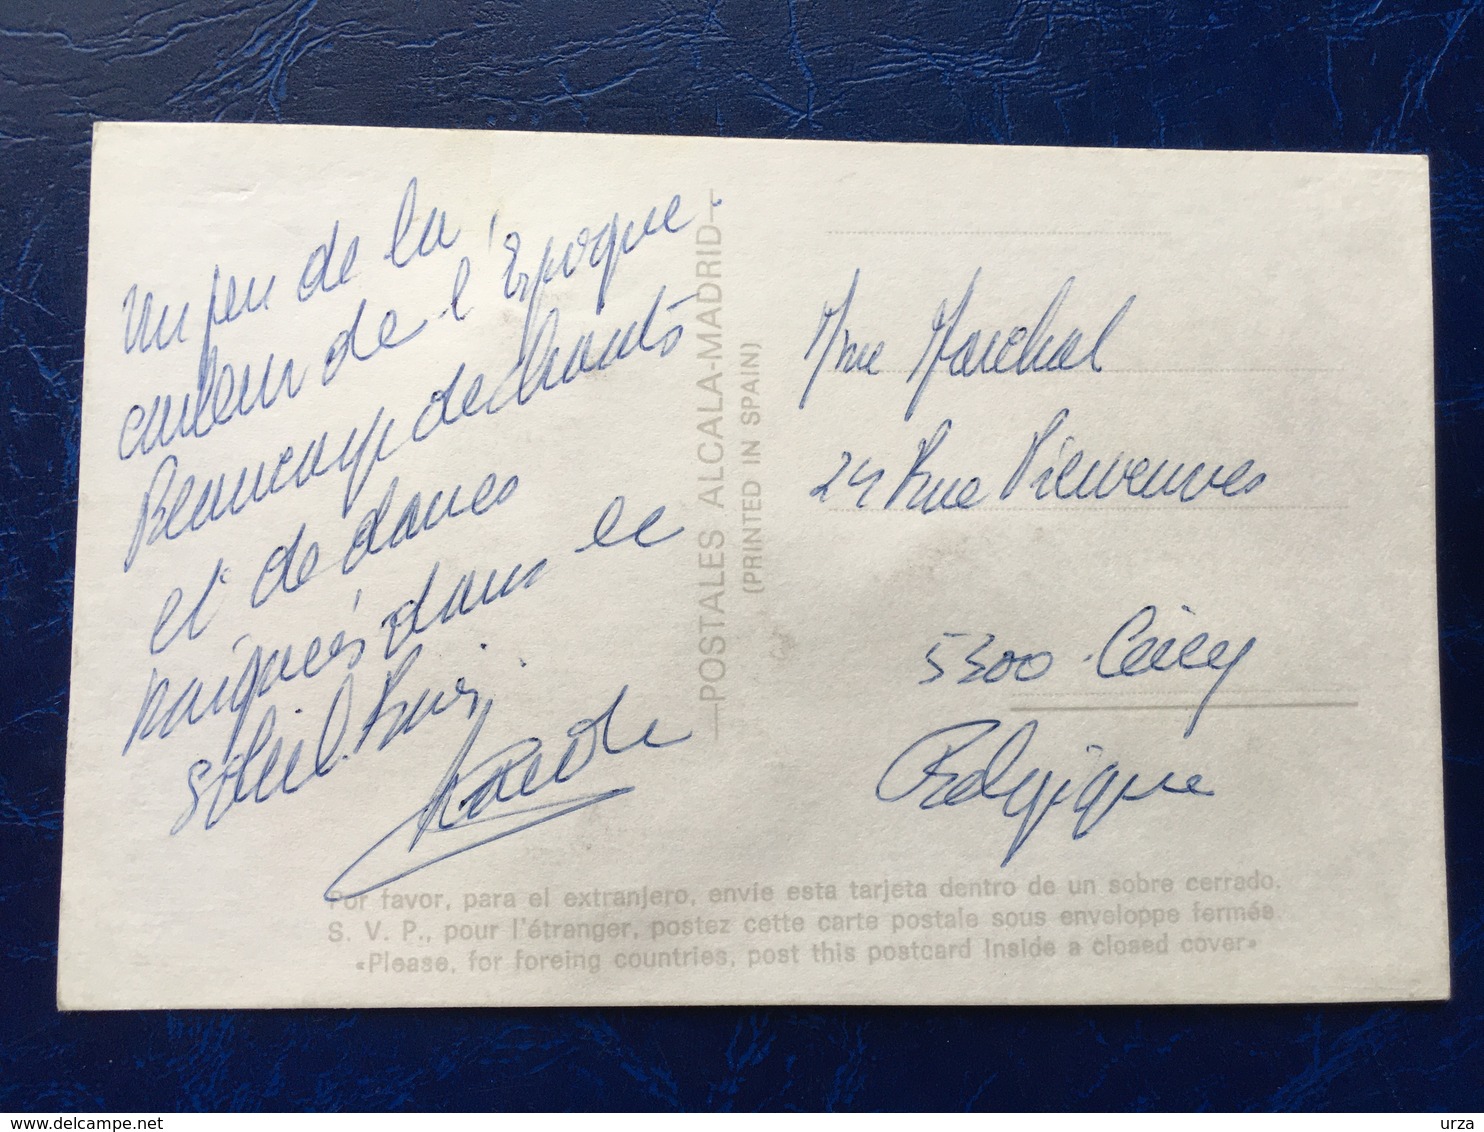 Un peu de la
couleur de l'Epoque.
Beaucoup de chants
et de danses
dans le
soleil.
Mme Marchal
24 Rue
5300 Ciney
Belgique
POSTALES ALCALA-MADRID
(PRINTED IN SPAIN)
Por favor, para el extranjero, envíe esta tarjeta dentro de un sobre cerrado.
S. V. P., pour l'étranger, postez cette carte postale sous enveloppe fermée.
«Please, for foreing countries, post this postcard inside a closed cover»
urza